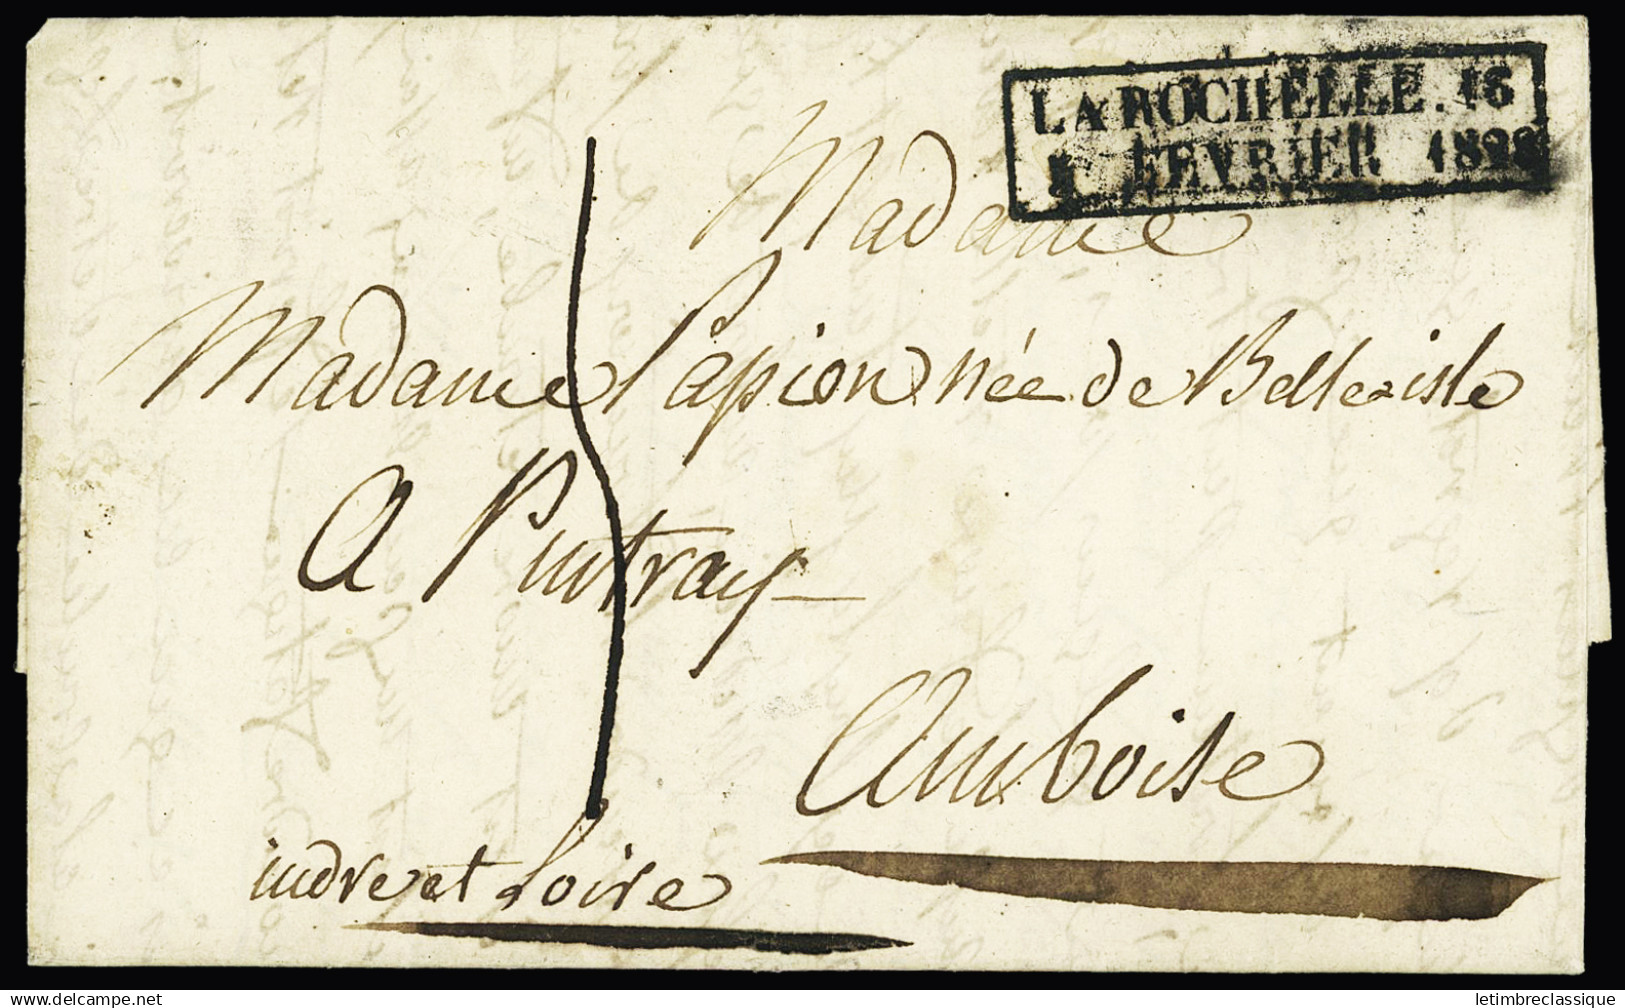 LA ROCHELLE. 16
FEVRIER 1828
Madame
Madame Papion née de Belle-isle
A Puitray
Amboise
indre et Loire
letimbreclassique